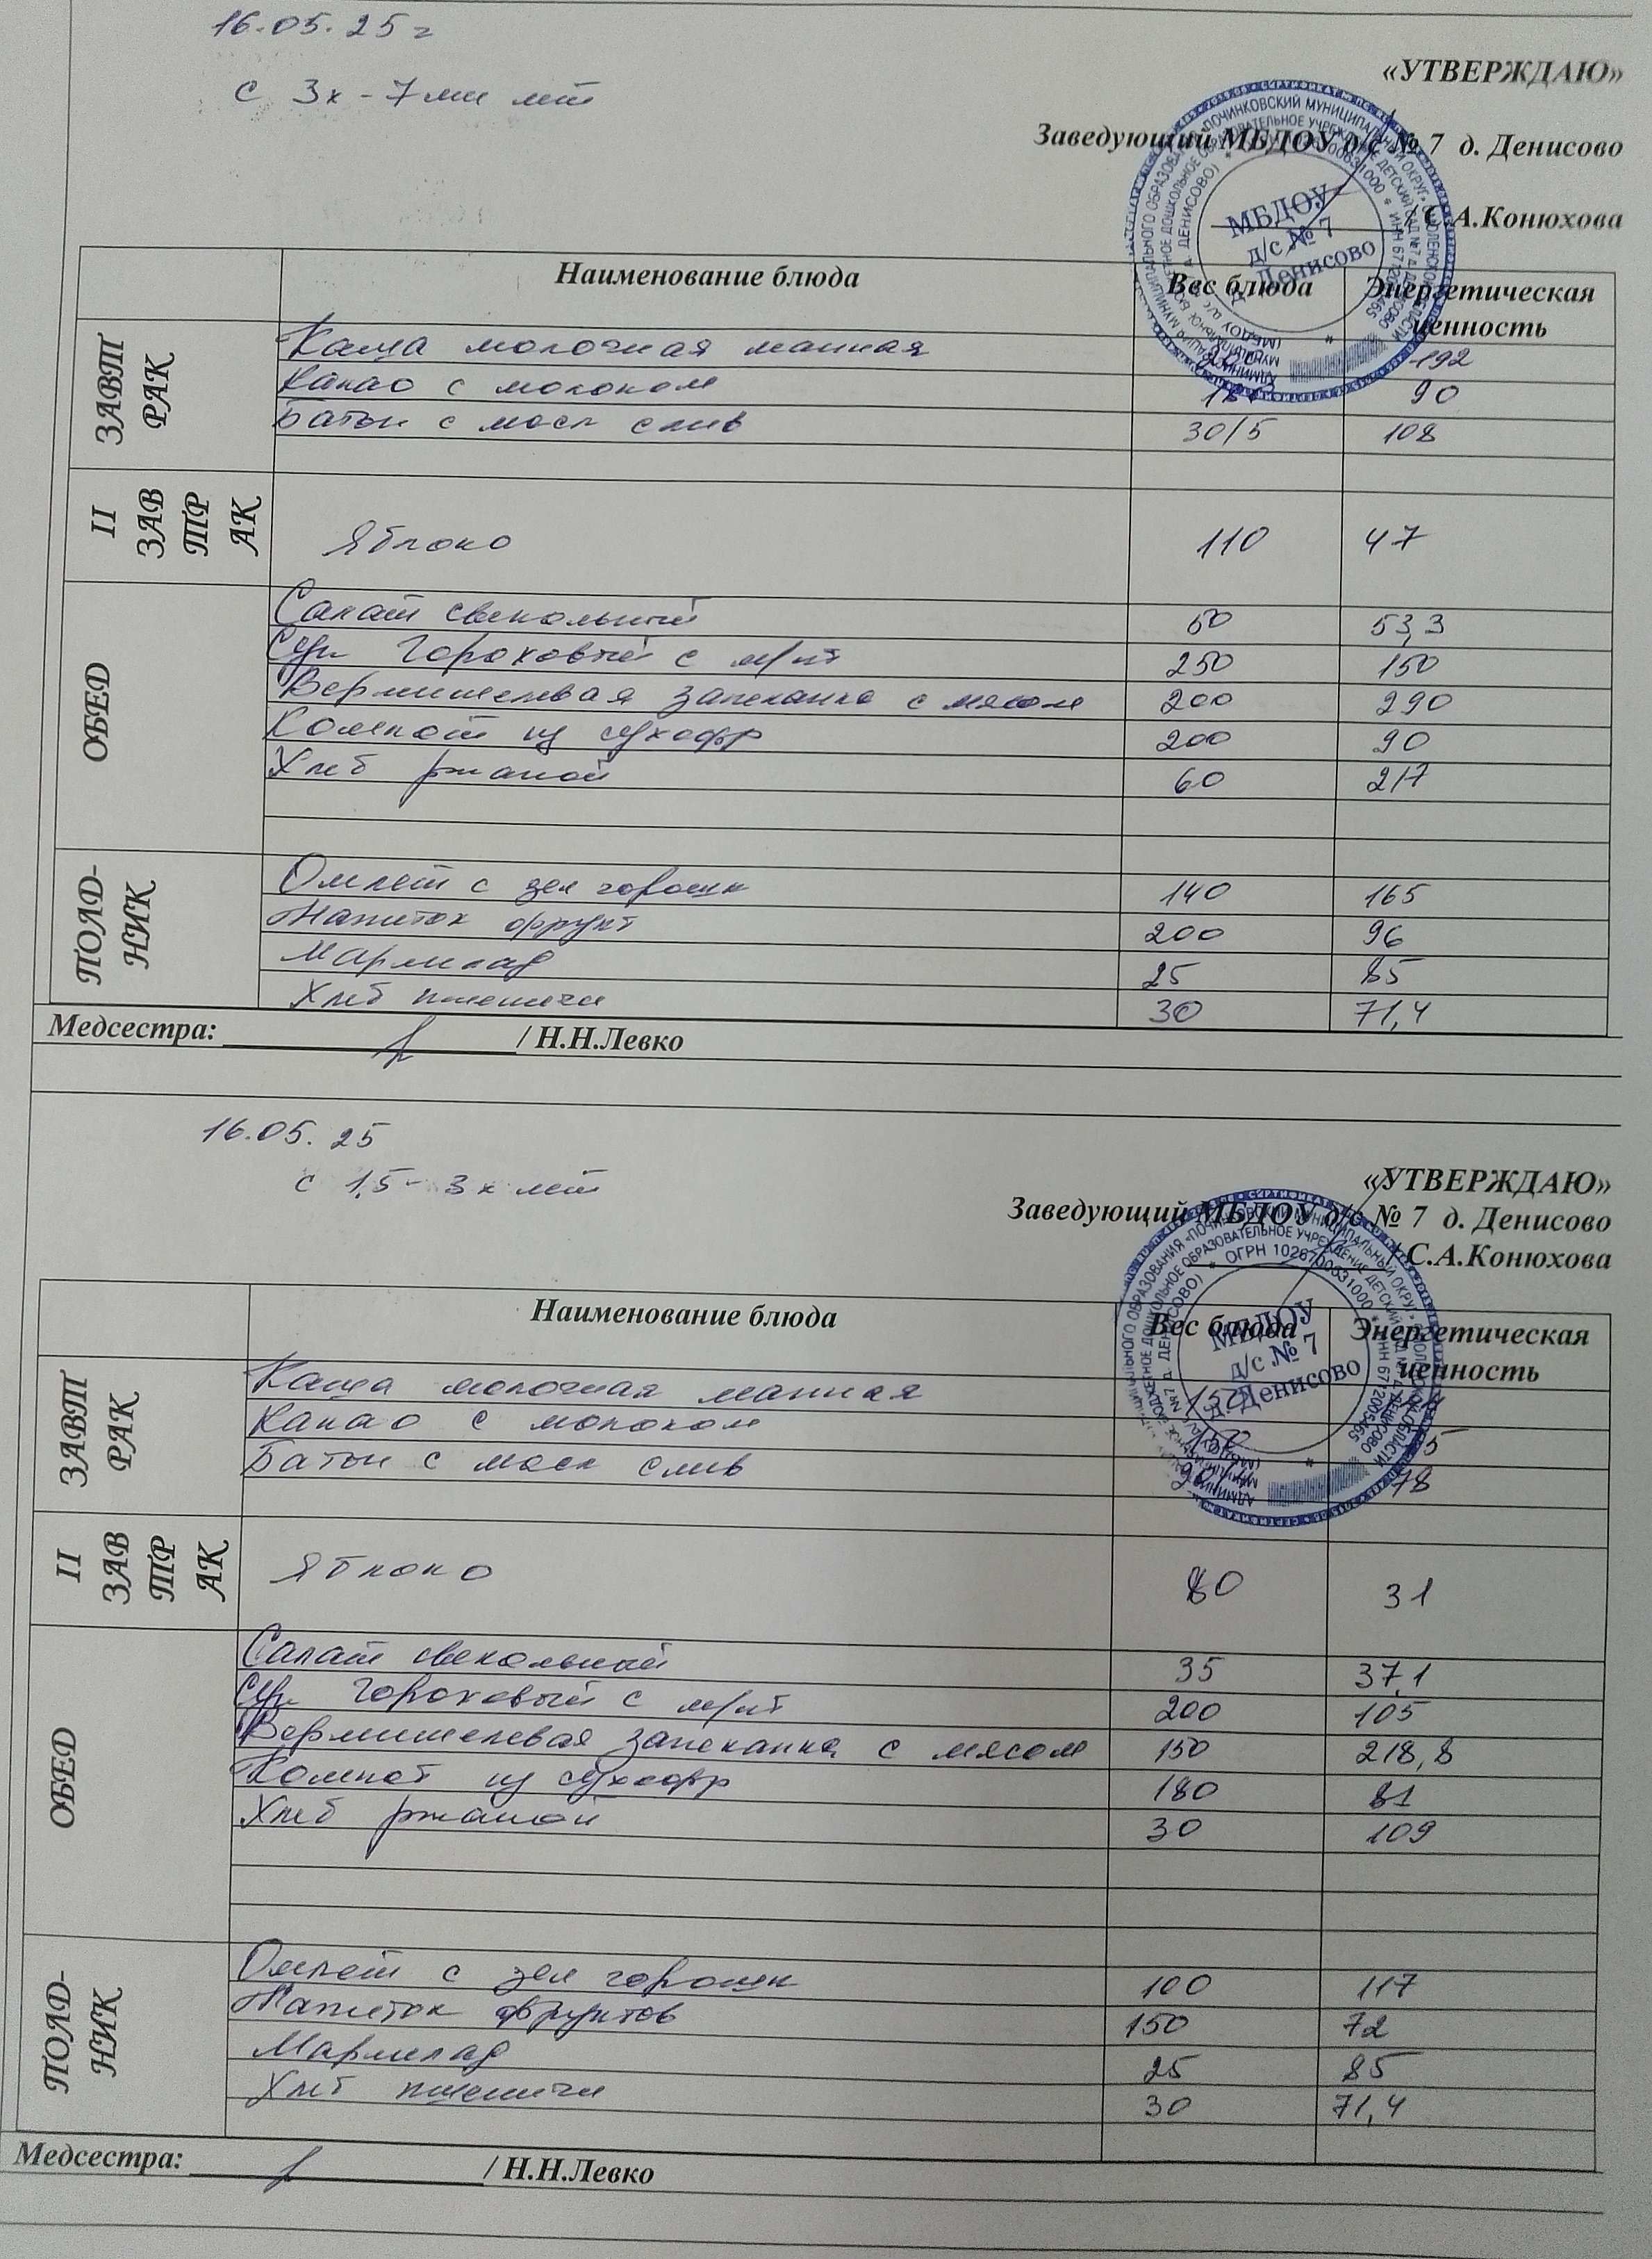 16.05.25г
с 3х-7ми лет
«УТВЕРЖДАЮ»
Заведующий МБДОУ д/с № 7 д. Денисово
/ С.А.Конюхова
МБДОУ
д/с № 7
д. Денисово
Наименование блюда Вес блюда Энергетическая ценность
ЗАВТРАК
Каша молочная манная 192
Какао с молоком 90
Батон с масл слив 30/5 108
II ЗАВТРАК
Яблоко 110 47
ОБЕД
Салат свекольный 50 53,3
Суп гороховый с м/пт 250 150
Вермишелевая запеканка с мясом 200 290
Компот из сухофр 200 90
Хлеб ржаной 60 217
ПОЛД-НИК
Омлет с зел горошк 140 165
Напиток фрукт 200 96
Мармелад 25 85
Хлеб пшеничн 30 71,4
Медсестра: / Н.Н.Левко
16.05.25
с 1,5-3х лет
«УТВЕРЖДАЮ»
Заведующий МБДОУ д/с № 7 д. Денисово
/ С.А.Конюхова
МБДОУ
д/с № 7
д. Денисово
Наименование блюда Вес блюда Энергетическая ценность
ЗАВТРАК
Каша молочная манная
Какао с молоком 150
Батон с масл слив 78
II ЗАВТРАК
Яблоко 80 31
ОБЕД
Салат свекольный 35 37,1
Суп гороховый с м/пт 200 105
Вермишелевая запеканка с мясом 150 218,8
Компот из сухофр 180 81
Хлеб ржаной 30 109
ПОЛД-НИК
Омлет с зел горошк 100 117
Напиток фруктов 150 72
Мармелад 25 85
Хлеб пшеничн 30 71,4
Медсестра: / Н.Н.Левко